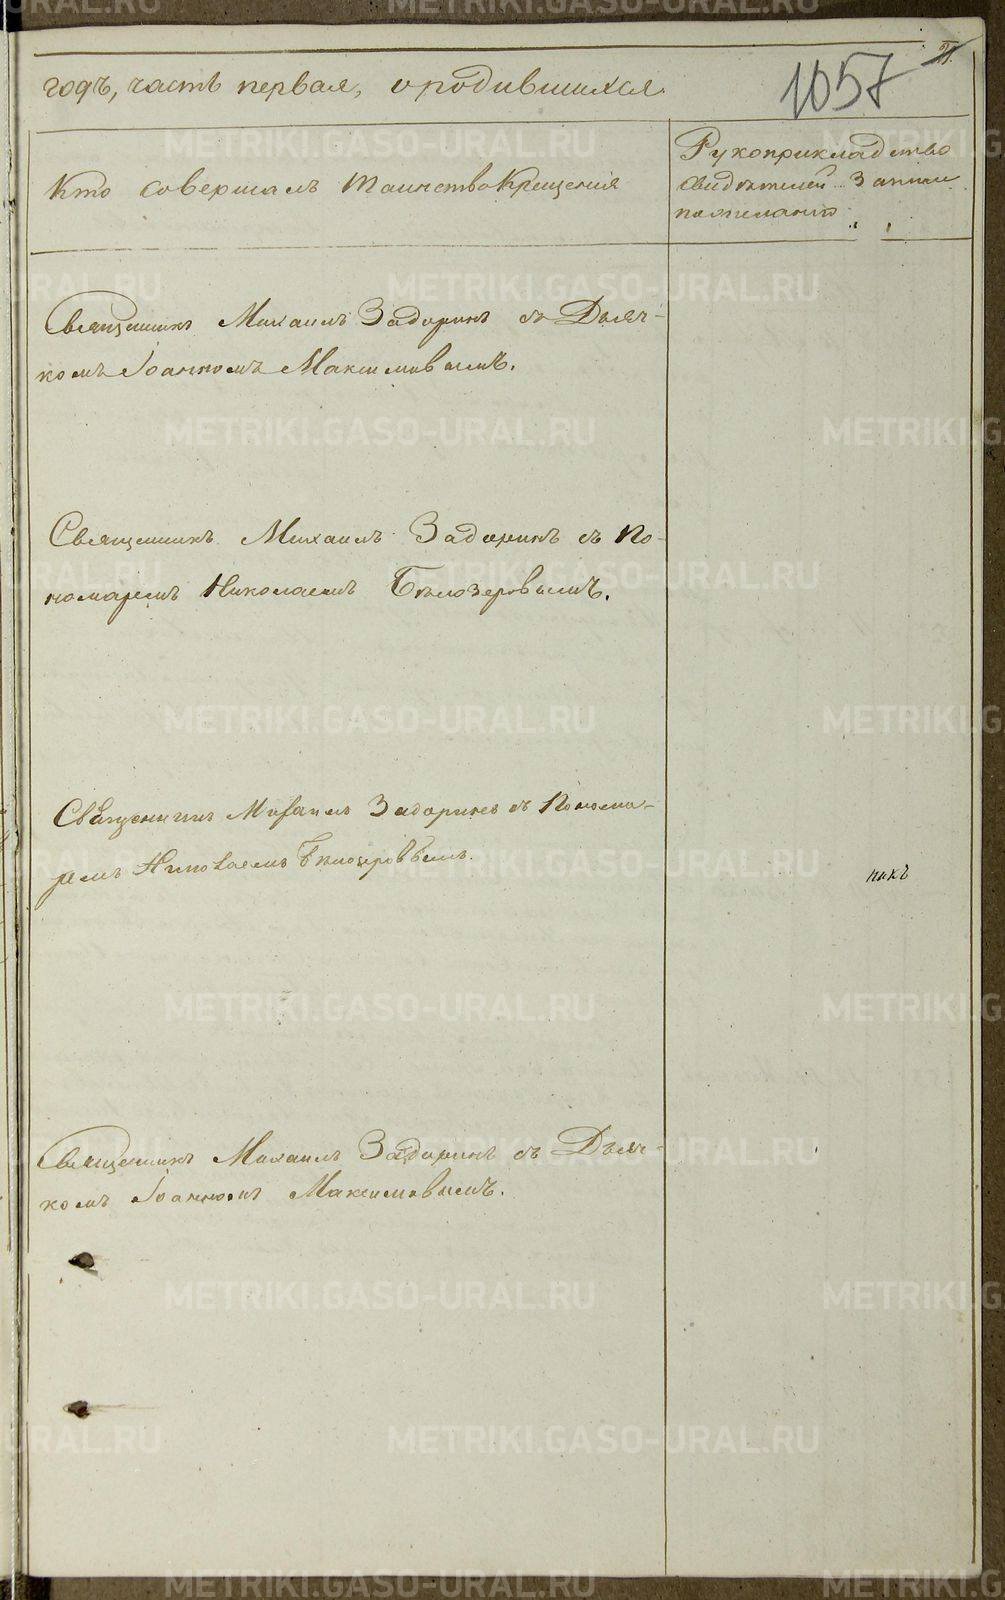 1057
годъ, часть первая, о родившихся
Кто совершалъ таинство Крещения
Рукоприкладство
свидѣтелей записи
по желанiю
Священникъ Михаилъ Задоринъ съ Дьяч-
комъ Iоанномъ Максимовымъ.
Священникъ Михаилъ Задоринъ съ По-
номаремъ Николаемъ Бѣлозеровымъ.
Священникъ Михаилъ Задоринъ съ Понома-
ремъ Николаемъ Бѣлозеровымъ.
никъ
Священникъ Михаилъ Задоринъ съ Дьяч-
комъ Iоанномъ Максимовымъ.
METRIKI.GASO-URAL.RU